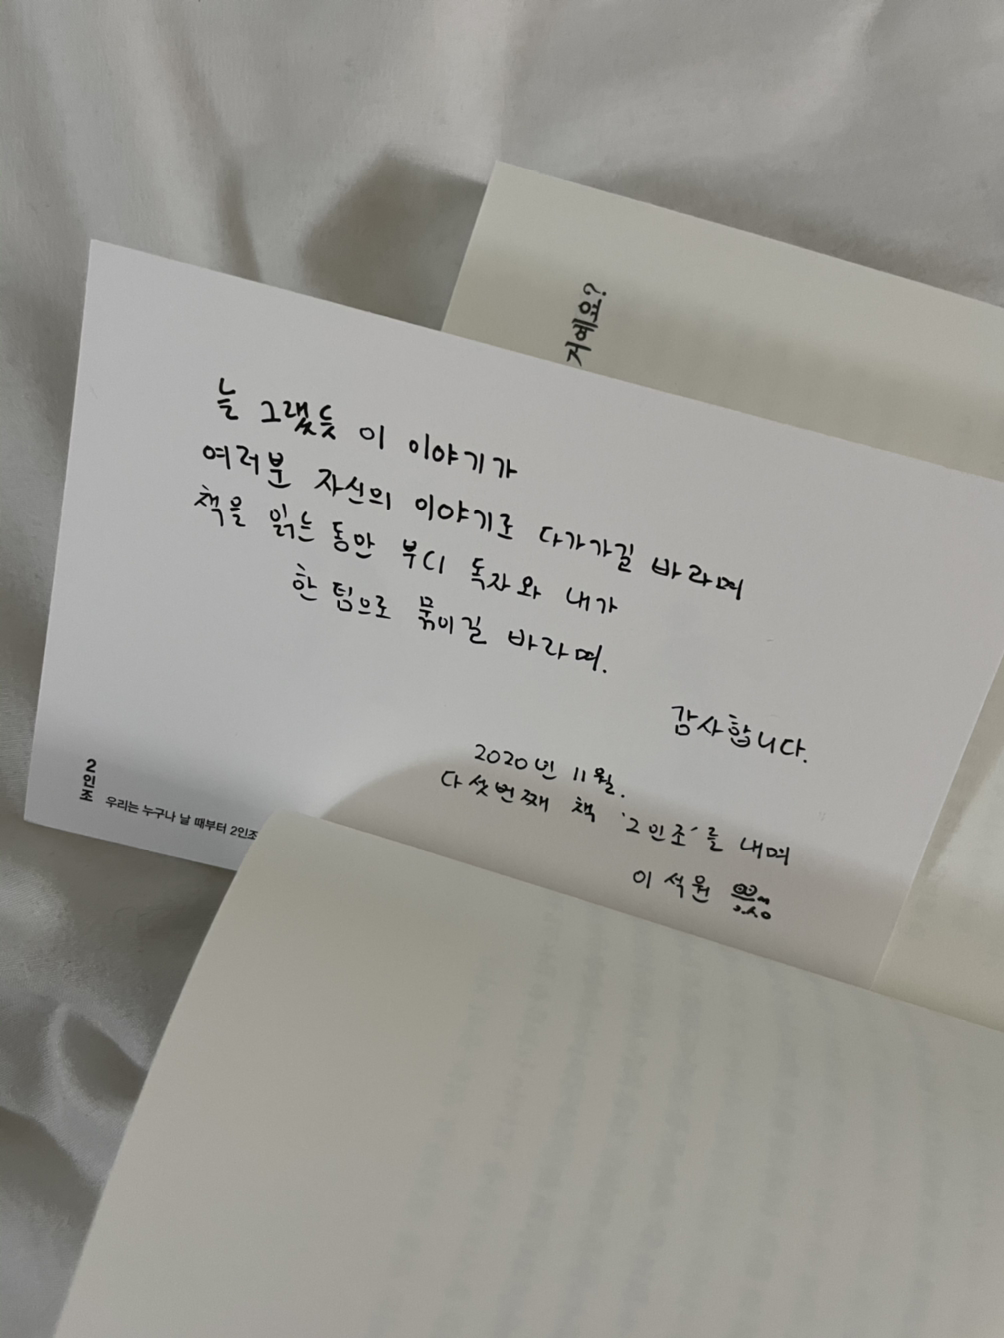 거예요?
늘 그랬듯 이 이야기가
여러분 자신의 이야기로 다가가길 바라며
책을 읽는 동안 부디 독자와 내가
한 팀으로 묶이길 바라며.
감사합니다.
2020년 11월.
다섯번째 책 '2인조'를 내며
이석원
2인조
우리는 누구나 날 때부터 2인조